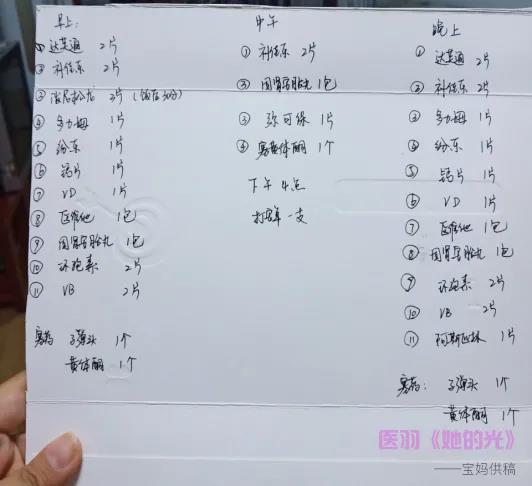 早上:
① 达芙通 2片
② 补佳乐 2片
③ 泼尼松龙 2片 (饭后30分)
④ 多力姆 1片
⑤ 纷乐 1片
⑥ 钙片 1片
⑦ VD 1片
⑧ 1包
⑨ 固肾安胎丸 1包
⑩ 环孢素 2片
⑪ VB 2片
塞药 子弹头 1个
黄体酮 1个
中午
① 补佳乐 2片
② 固肾安胎丸 1包
③ 弥可保 1片
④ 塞黄体酮 1个
下午 4点
一支
晚上
① 达芙通 2片
② 补佳乐 2片
③ 多力姆 1片
④ 纷乐 1片
⑤ 钙片 1片
⑥ VD 1片
⑦ 1包
⑧ 固肾安胎丸 1包
⑨ 环孢素 2片
⑩ VB 2片
⑪ 阿斯匹林 1片
塞药: 子弹头 1个
黄体酮 1个
医羽《她的光》
——宝妈供稿